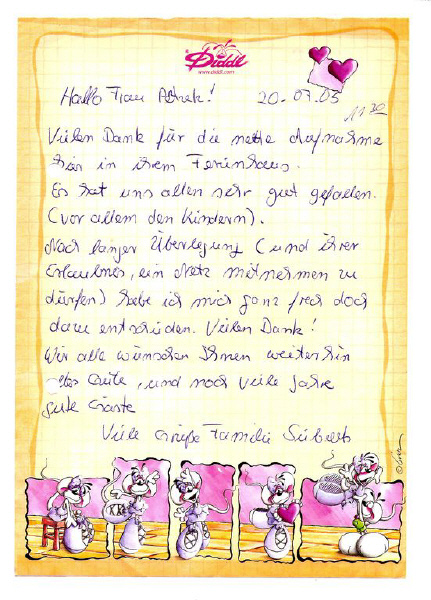 Diddl
www.diddl.com
Hallo Frau 20.07.05
11 30
Vielen Dank für die nette Aufnahme
hier in ihrem Ferienhaus.
Es hat uns allen sehr gut gefallen.
(vor allem den Kindern).
Nach langer Überlegung (und ihrer
Erlaubnis, ein Netz mitnehmen zu
dürfen) habe ich mich ganz frech doch
dazu entschieden. Vielen Dank!
Wir alle wünschen Ihnen weiterhin
alles Gute, und noch viele Jahre
gute Gäste
Viele Grüße Familie